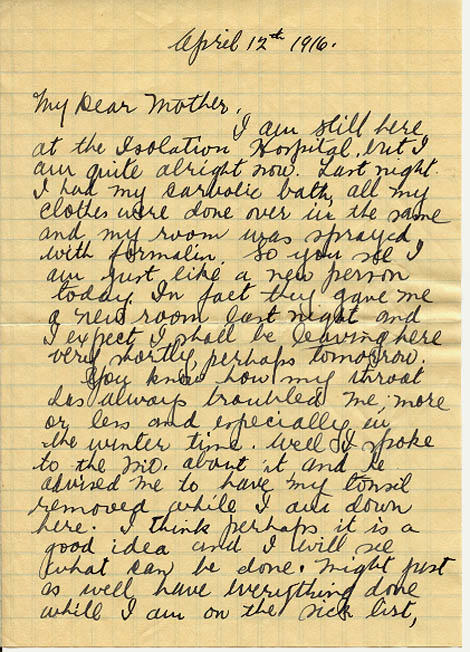 April 12th 1916.
My Dear Mother,
I am still here
at the Isolation Hospital, but I
am quite alright now. Last night
I had my carbolic bath, all my
clothes were done over in the same
and my room was sprayed
with formalin. So you see I
am just like a new person
today. In fact they gave me
a new room last night and
I expect I shall be leaving here
very shortly, perhaps tomorrow.
You know how my throat
has always troubled me, more
or less and especially in
the winter time. Well I spoke
to the M.O. about it and he
advised me to have my tonsil
removed while I am down
here. I think perhaps it is a
good idea and I will see
what can be done. Might just
as well have everything done
while I am on the sick list,